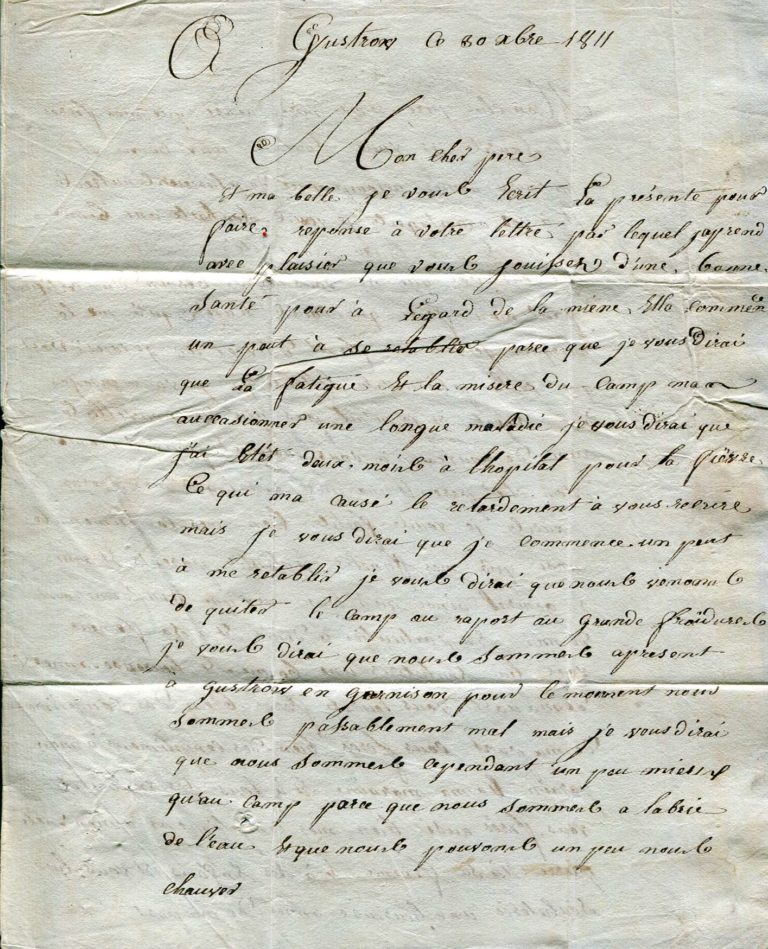 A Gustrow Ce 30 xbre 1811
Mon cher pere
Et ma belle je vous Ecrit La présente pour
faire reponse à votre lettre par lequel japrend
avec plaisier que vous jouissez d'une bonne
santé pour à L'egard de la miene Ella commen
un peut à se retablir parce que je vous dirai
que La fatigue Et la misere du camp ma
auccasionner une longue maladie je vous dirai que
j'ai Etét deux mois à lhopital pour la fiévre
Ce qui ma causé le retardement à vous recrire
mais je vous dirai que je commence un peut
à me retablir je vous dirai que nous venons
de quiter le camp au raport au grande froidures
je vous dirai que nous sommes apresent
a gustrow en garnison pour le moment nous
sommes passablement mal mais je vous dirai
que nous sommes cependant un peu miess
qu'au camp parce que nous sommes a labrie
de l'eau Et que nous pouvons un peu nous
chauver